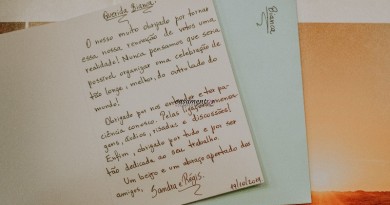 Querida Bianca
O nosso muito obrigado por tornar
essa nossa renovação de votos uma
realidade! Nunca pensamos que seria
possível organizar uma celebração de
tão longe, melhor, do outro lado do
mundo!
casamento
Obrigado por nos entender e ter pa-
ciência conosco. Pelas ligações, mensa-
gens, áudios, risadas e discussões!
Enfim, obrigado por tudo e por ser
tão dedicada ao seu trabalho.
Um beijo e um abraço apertado dos
amigos, Sandra e Régis.
Bianca